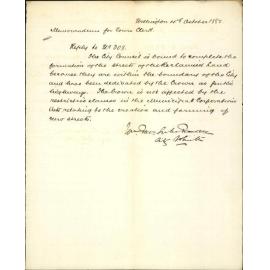 Wellington 10th October 1885
Memorandum for Town Clerk
Reply to No 208
The City Council is bound to complete the
formation of the streets of the Reclaimed Land
because they are within the boundary of the City
and has been dedicated by the Crown as public
highways. The Crown is not affected by the
restrictive clauses in the Municipal Corporations
Acts relating to the creation and forming of
new streets.